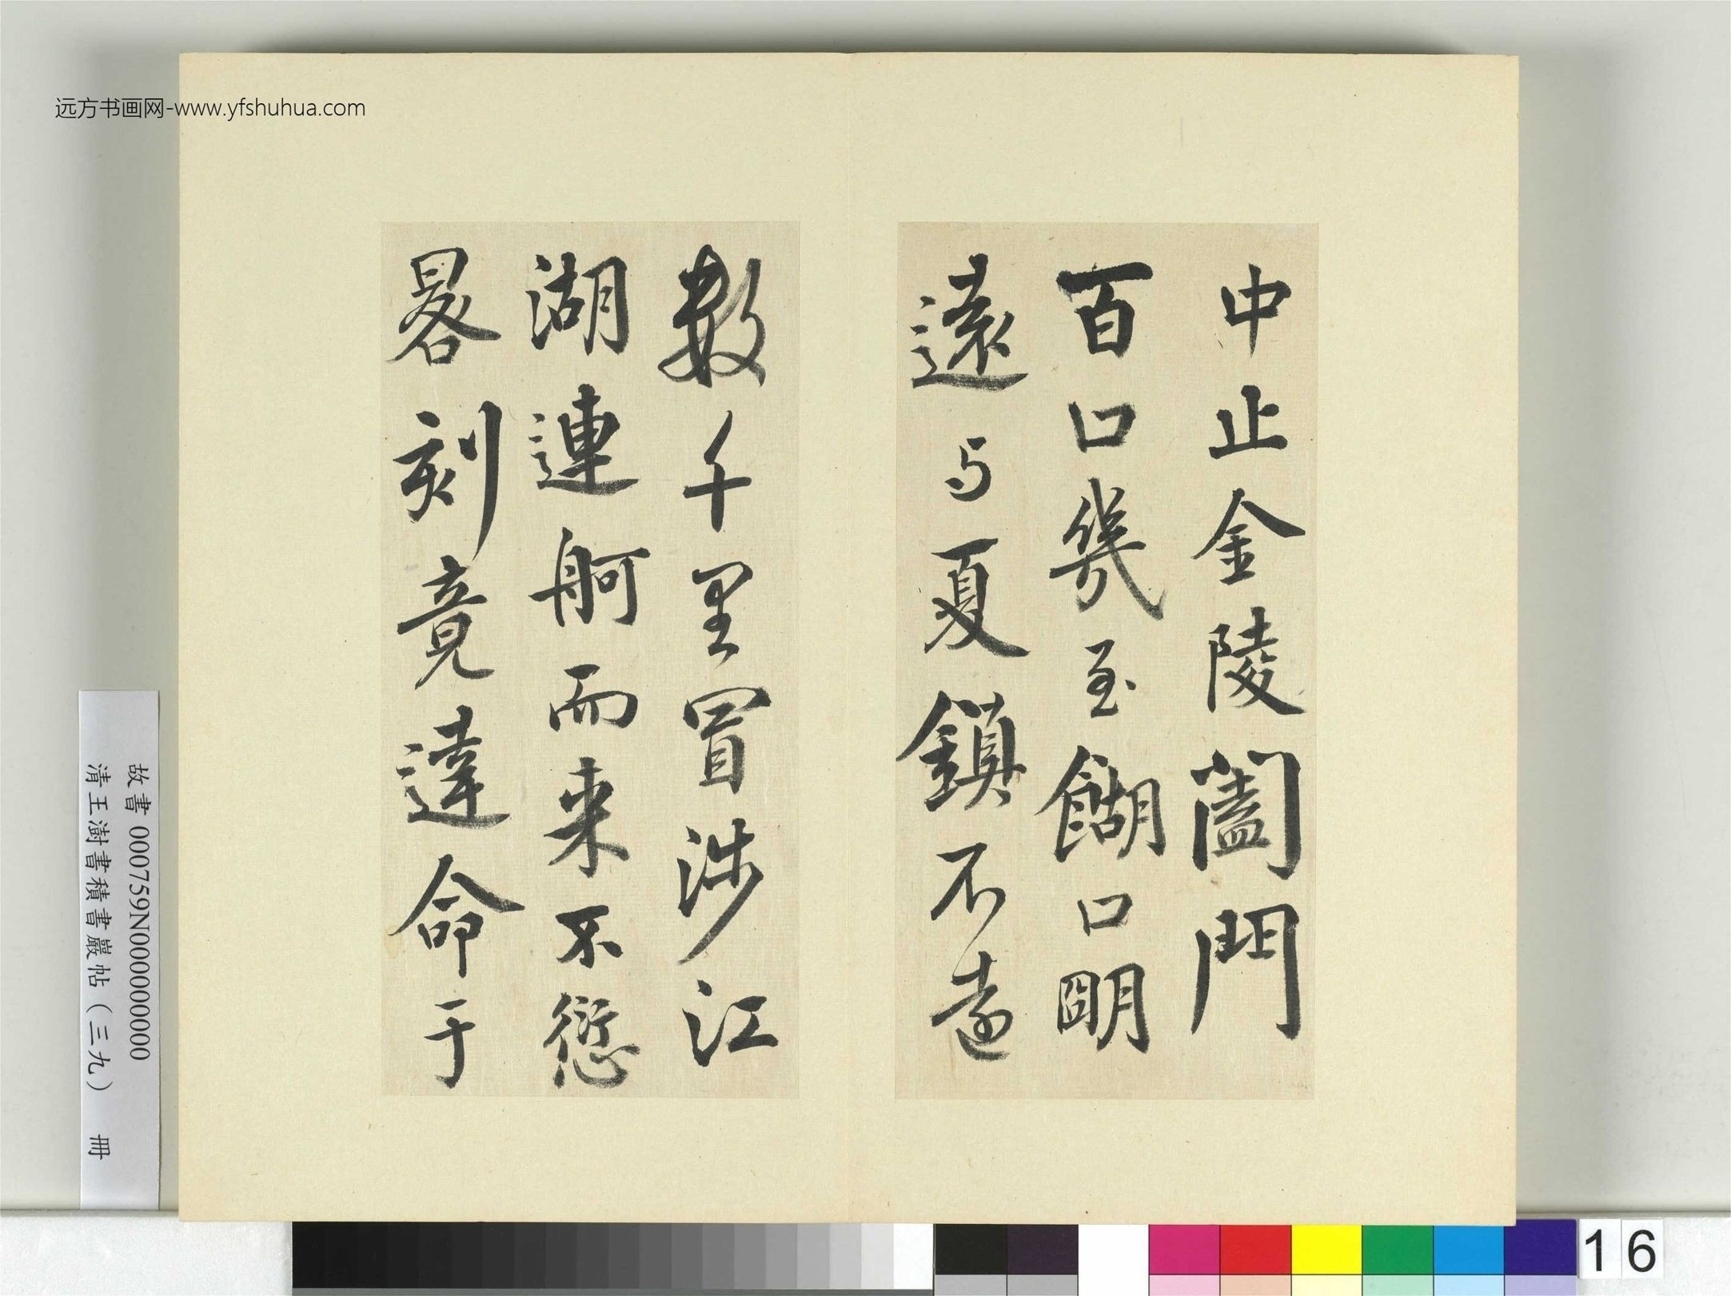 远方书画网-www.yfshuhua.com
中止金陵闔門
百口幾至餬口朙
遠与夏鎮不遠
數千里冒涉江
湖連舸而来不愆
晷刻竟達命于
故書 000759N000000000
清王澍書積書巖帖（三九） 冊
16